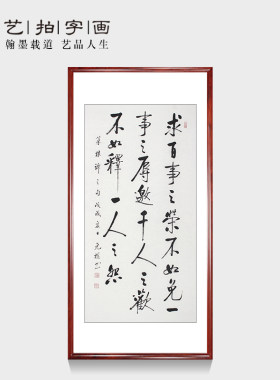 艺|拍|字|画
翰墨载道 艺品人生
求百事之榮不如免一
事之辱邀千人之歡
不如釋一人之怨
菜根譚之句